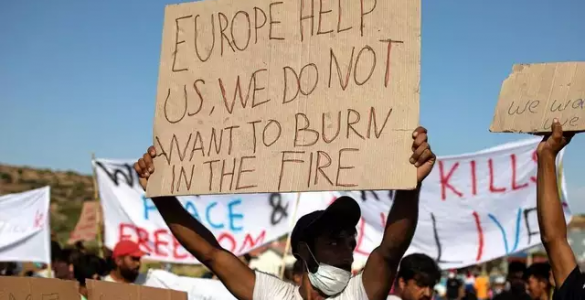 EUROPE HELP
US, WE DO NOT
WANT TO BURN
IN THE FIRE
we wa
we
PEACE &
FREEDOM
KILLS
LIVE